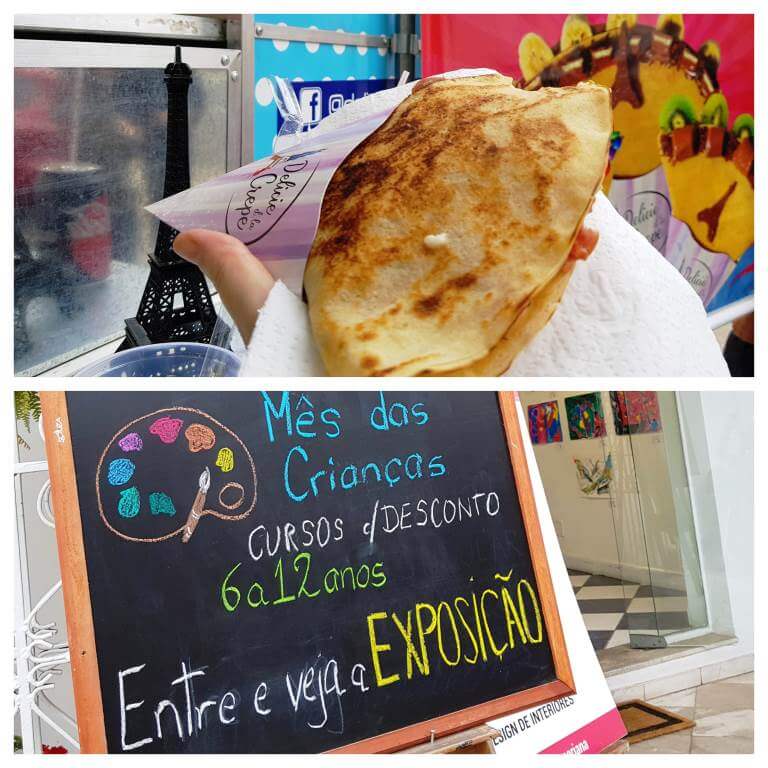 Delicie
d la
Crepe
Delicie
Mês das
Crianças
CURSOS c/DESCONTO
6 a 12 anos
Entre e veja a EXPOSIÇÃO
ESIGN DE INTERIORES